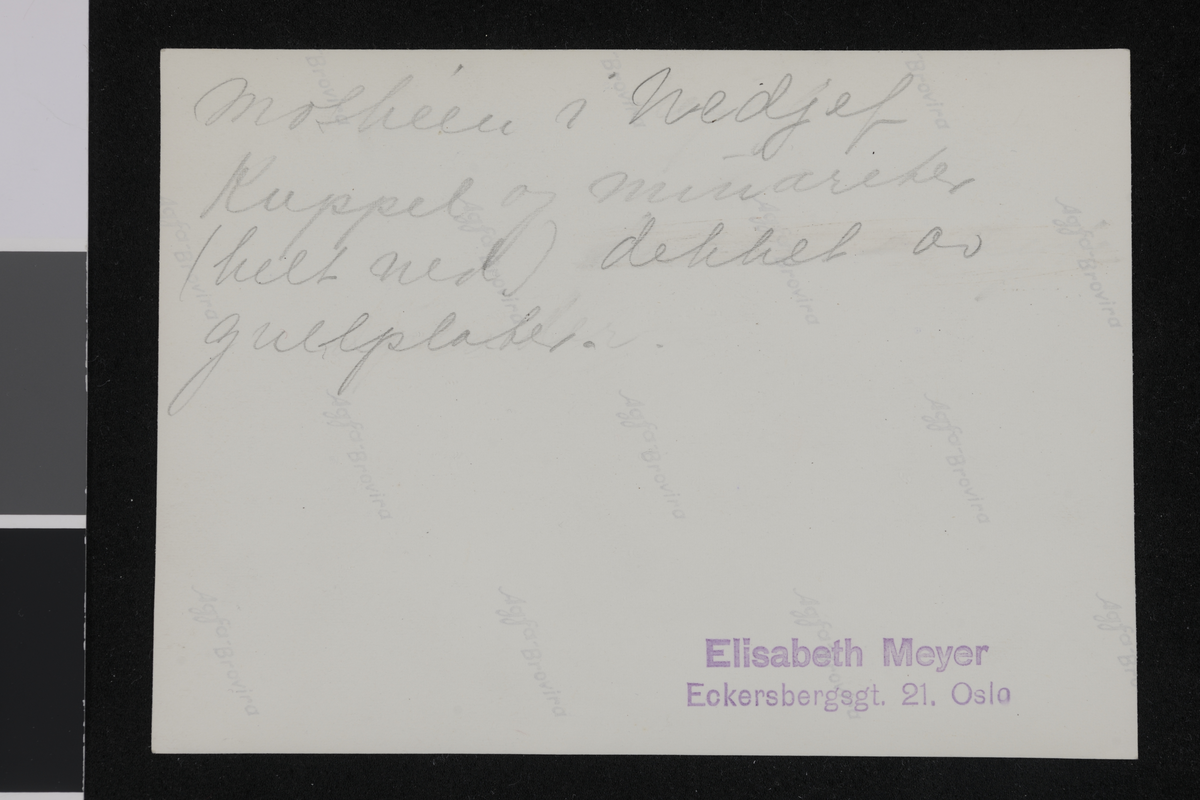 Moskéen i Nedjef
Kuppel og minareter
(helt ned) dekket av
gullplater.
Elisabeth Meyer
Eckersbergsgt. 21. Oslo
Agfa-Brovira